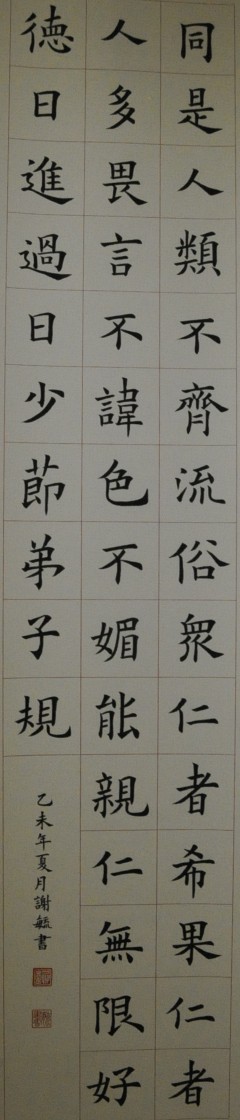 同是人類不齊流俗衆仁者希果仁者
人多畏言不諱色不媚能親仁無限好
德日進過日少節弟子規
乙未年夏月謝毓書